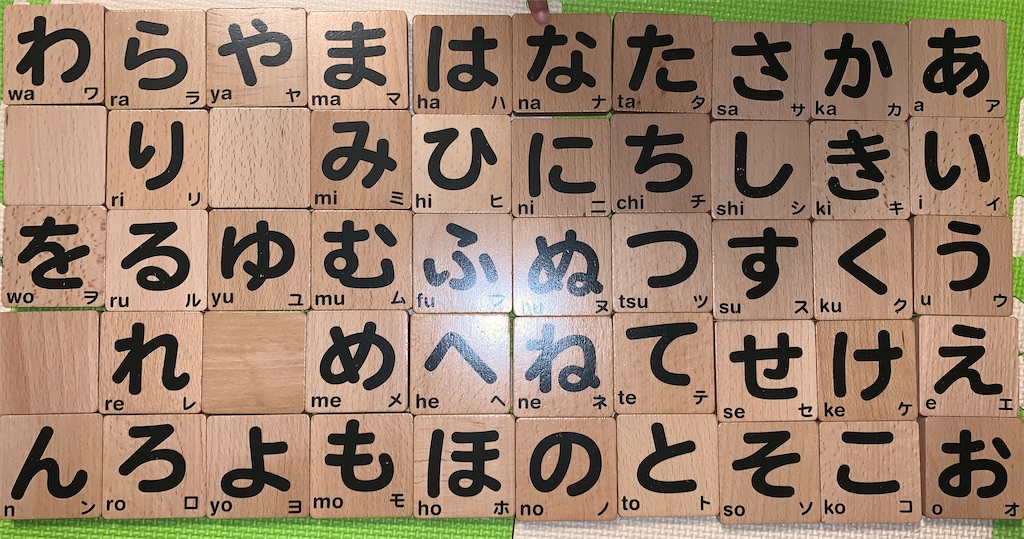 わ ら や ま は な た さ か あ
wa ワ ra ラ ya ヤ ma マ ha ハ na ナ ta タ sa サ ka カ a ア
り み ひ に ち し き い
ri リ mi ミ hi ヒ ni ニ chi チ shi シ ki キ i イ
を る ゆ む ふ ぬ つ す く う
wo ヲ ru ル yu ユ mu ム fu フ nu ヌ tsu ツ su ス ku ク u ウ
れ め へ ね て せ け え
re レ me メ he ヘ ne ネ te テ se セ ke ケ e エ
ん ろ よ も ほ の と そ こ お
n ン ro ロ yo ヨ mo モ ho ホ no ノ to ト so ソ ko コ o オ